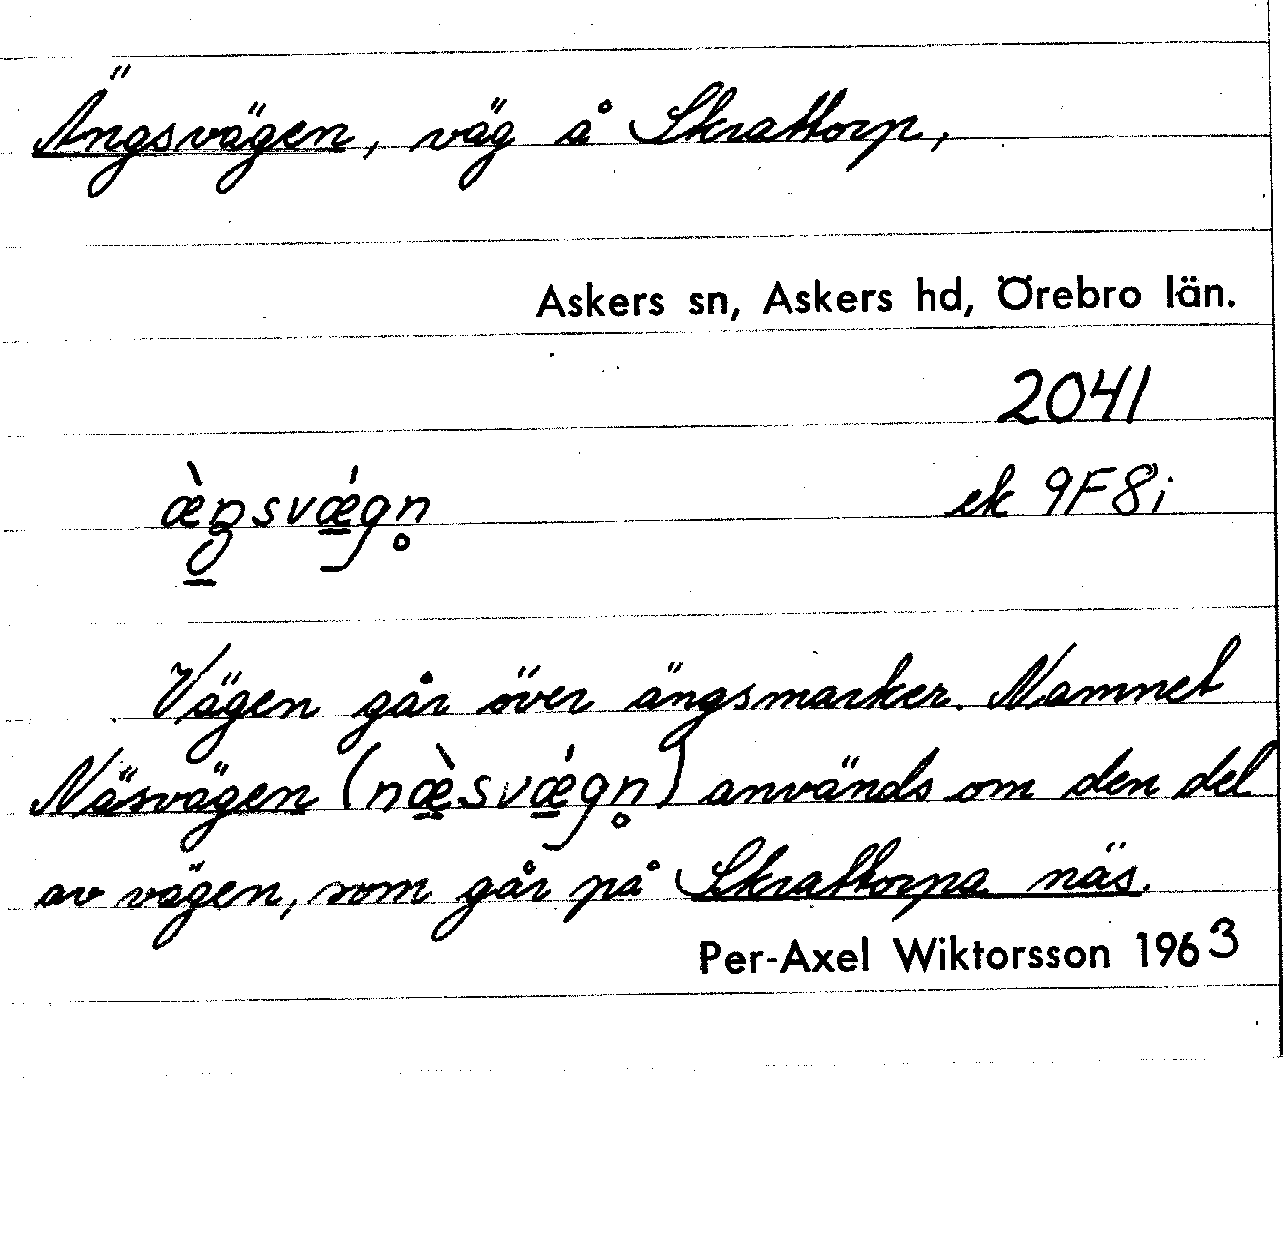 Ängsvägen, väg å Skrattorp,
Askers sn, Askers hd, Örebro län.
2041
æ̀ŋsvǽgn̥
ek 9F8i
Vägen går över ängsmarker. Namnet
Näsvägen (næ̀svǽgn̥) används om den del
av vägen, som går på Skrattorpa näs.
Per-Axel Wiktorsson 1963